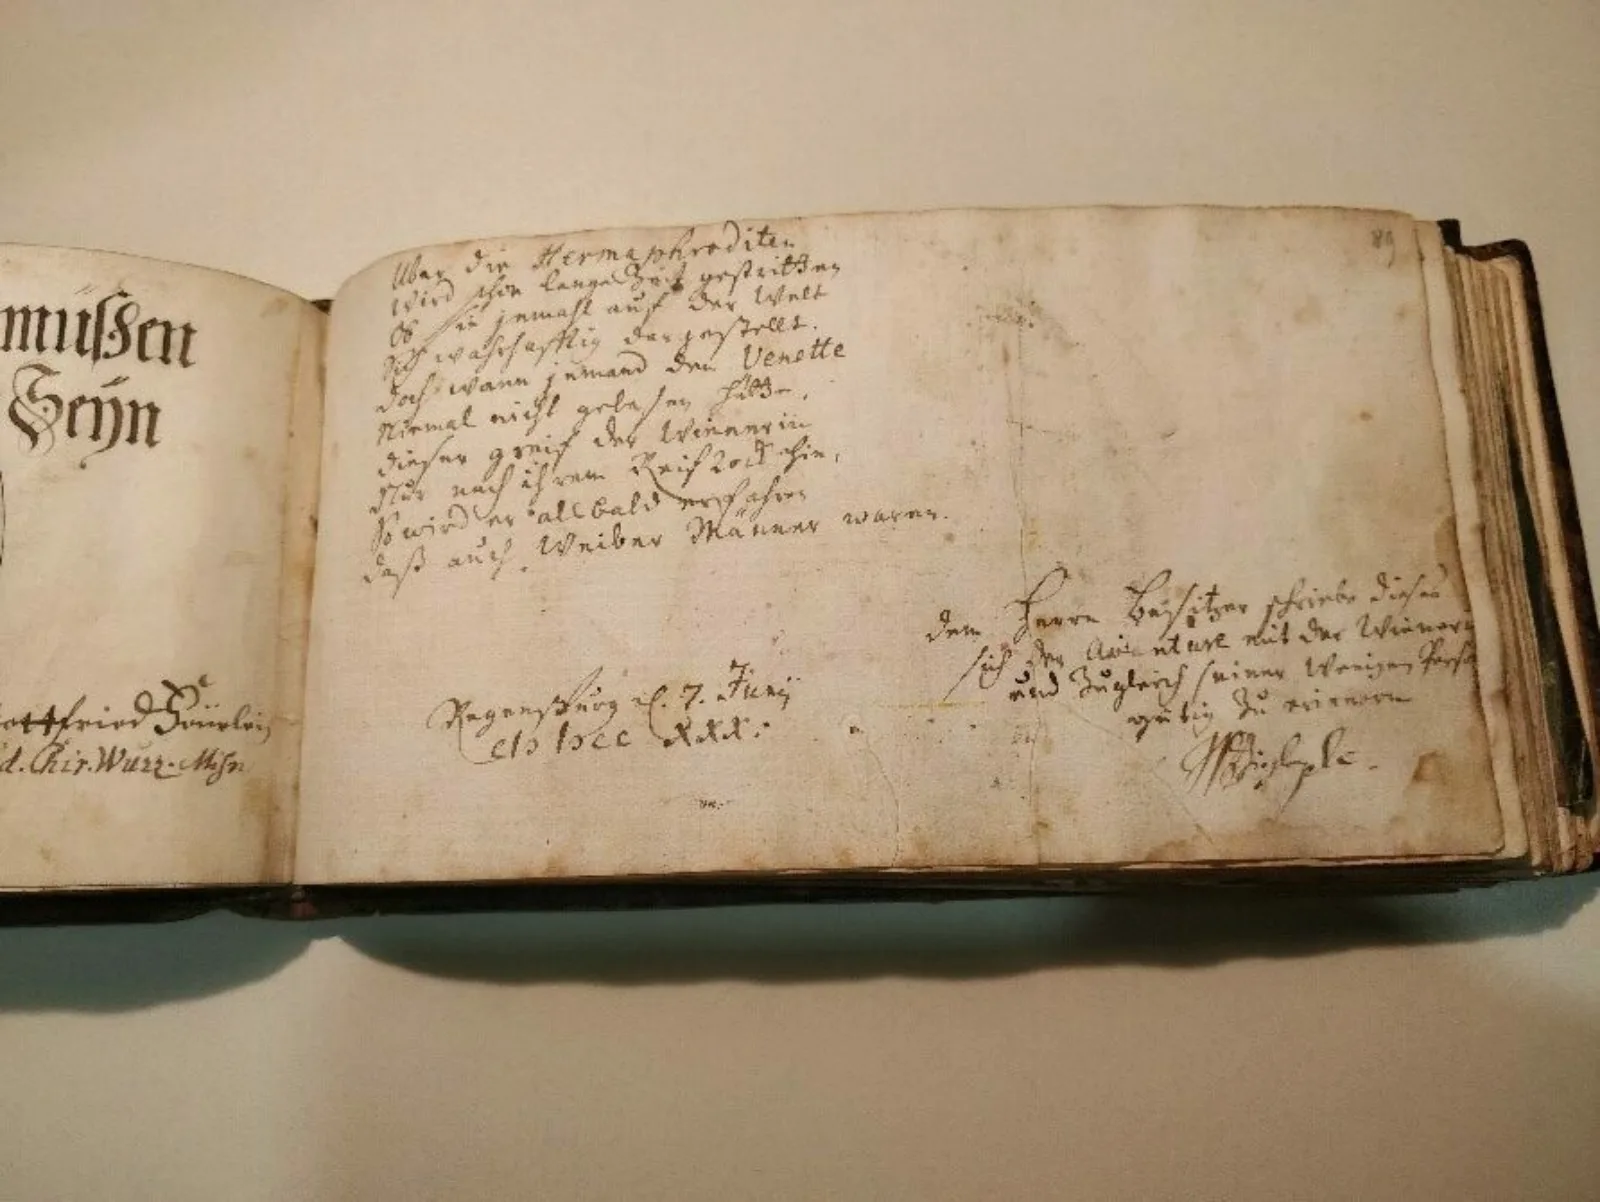 müßen
Seyn
ottfried
d. Chir. Wurz. Misn
89
Uber die Hermaphroditen
wird schon lange Zeit gestritten
Ob sie jemahl auf der Welt
sich wahrhafftig dargestellt.
doch wann jemand den Venette
Niemal nicht gelesen hätte,
dieser greif der Wienerin
Nur nach ihrem Reifrock hin,
So wird er alsbald erfahren
daß auch Weiber Männer waren.
Regensburg d. 7. Junij
XXX.
dem Herrn Besitzer schriebe dieses
sich der mit der Wienerin
und zugleich seiner wenigen
gütig zu erinnern